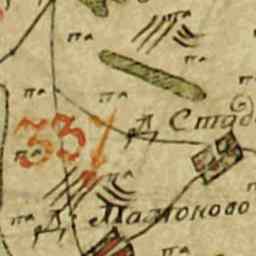 па
па
па
па
па
па
337
Д. Стаб
па
па
па
Д. Мамоново
па